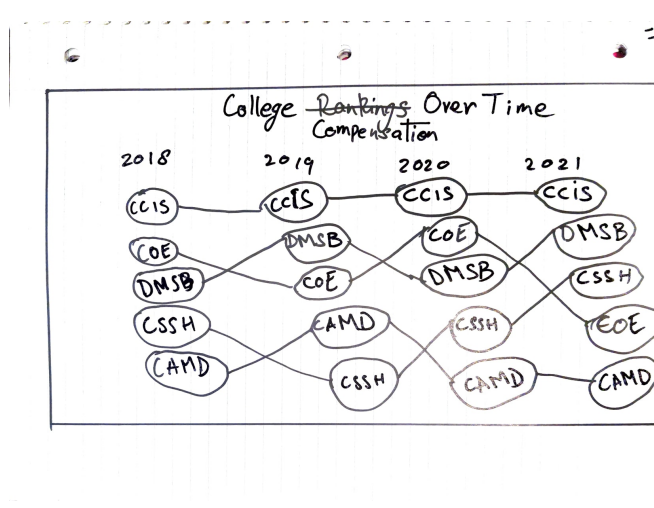 College Rankings Over Time
Compensation
2018 2019 2020 2021
CCIS CCIS CCIS CCIS
COE DMSB COE DMSB
DMSB COE DMSB CSSH
CSSH CAMD CSSH COE
CAMD CSSH CAMD CAMD